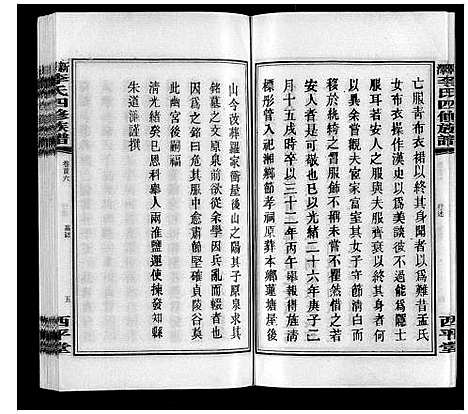 亡服青布衣裙以終其身聞者以爲難昔孟氏
女布衣操作漢史以爲美談彼不過能爲隱士
安人者夫人之服與夫服齊衰以終其身之
以異余嘗觀夫宦家富室其女子之服
移於紈綺之習服飾不問未嘗不瞿然惜之若
安人者是可尚也以光緒二十六年庚子二
月十五戌時卒以三十二年丙午舉報得旌清
標彤管入祀湘鄉節孝祠原葬本鄉蓮塘屋後
山今改葬羅家衝屋後山之陽其子原泉求其
銘墓之文原泉前欲從余學因兵亂而輟者也
因爲之銘曰危其服中愈肅節堅確貞陵谷奠
此幽宮後嗣福
清光緒癸巳恩科舉人兩淮鹽運使揀發知縣
朱道濂謹撰
李氏四修族譜
卷首六
墓誌
五
西平堂
李氏四修族譜
西平堂